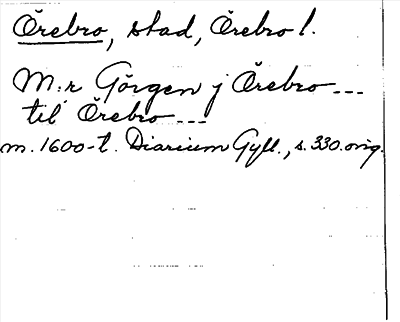 Örebro, stad, Örebro l.
M:r Görgen j Örebro ---
til Örebro ---
m. 1600-t. Diarium Gyll., s. 330. orig.